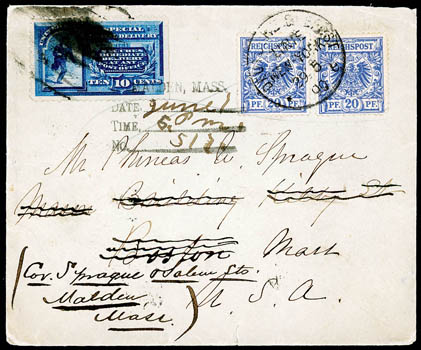 SPECIAL
DELIVERY
IMMEDIATE
DELIVERY
TEN 10 CENTS
REICHSPOST
PF. 20 PF.
REICHSPOST
PF. 20 PF.
MALDEN, MASS.
DATE, June 1
TIME, 5 P m
NO.
Mr Phineas W. Sprague
Main Building Kilby St
Boston Mass
Cor. Sprague & Salem Sts.
Malden
Mass.
U. S. A.